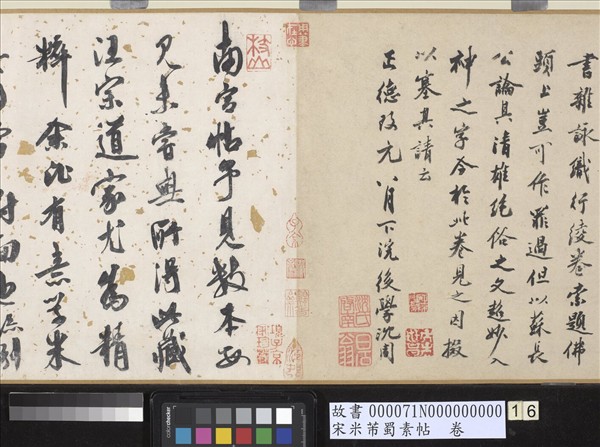 書雜詠織行綾卷索題佛
頭上豈可作罪過但以蘇長
公論其清雄絕俗之文超妙入
神之字今於此卷見之因掇
以塞其請云
正德改元八月下浣後學沈周
南宮帖予見數本每
見未嘗無所得此藏
汪宗道家尤為精
粹余比有意學米
故書 000071N000000000 16
宋米芾蜀素帖 卷